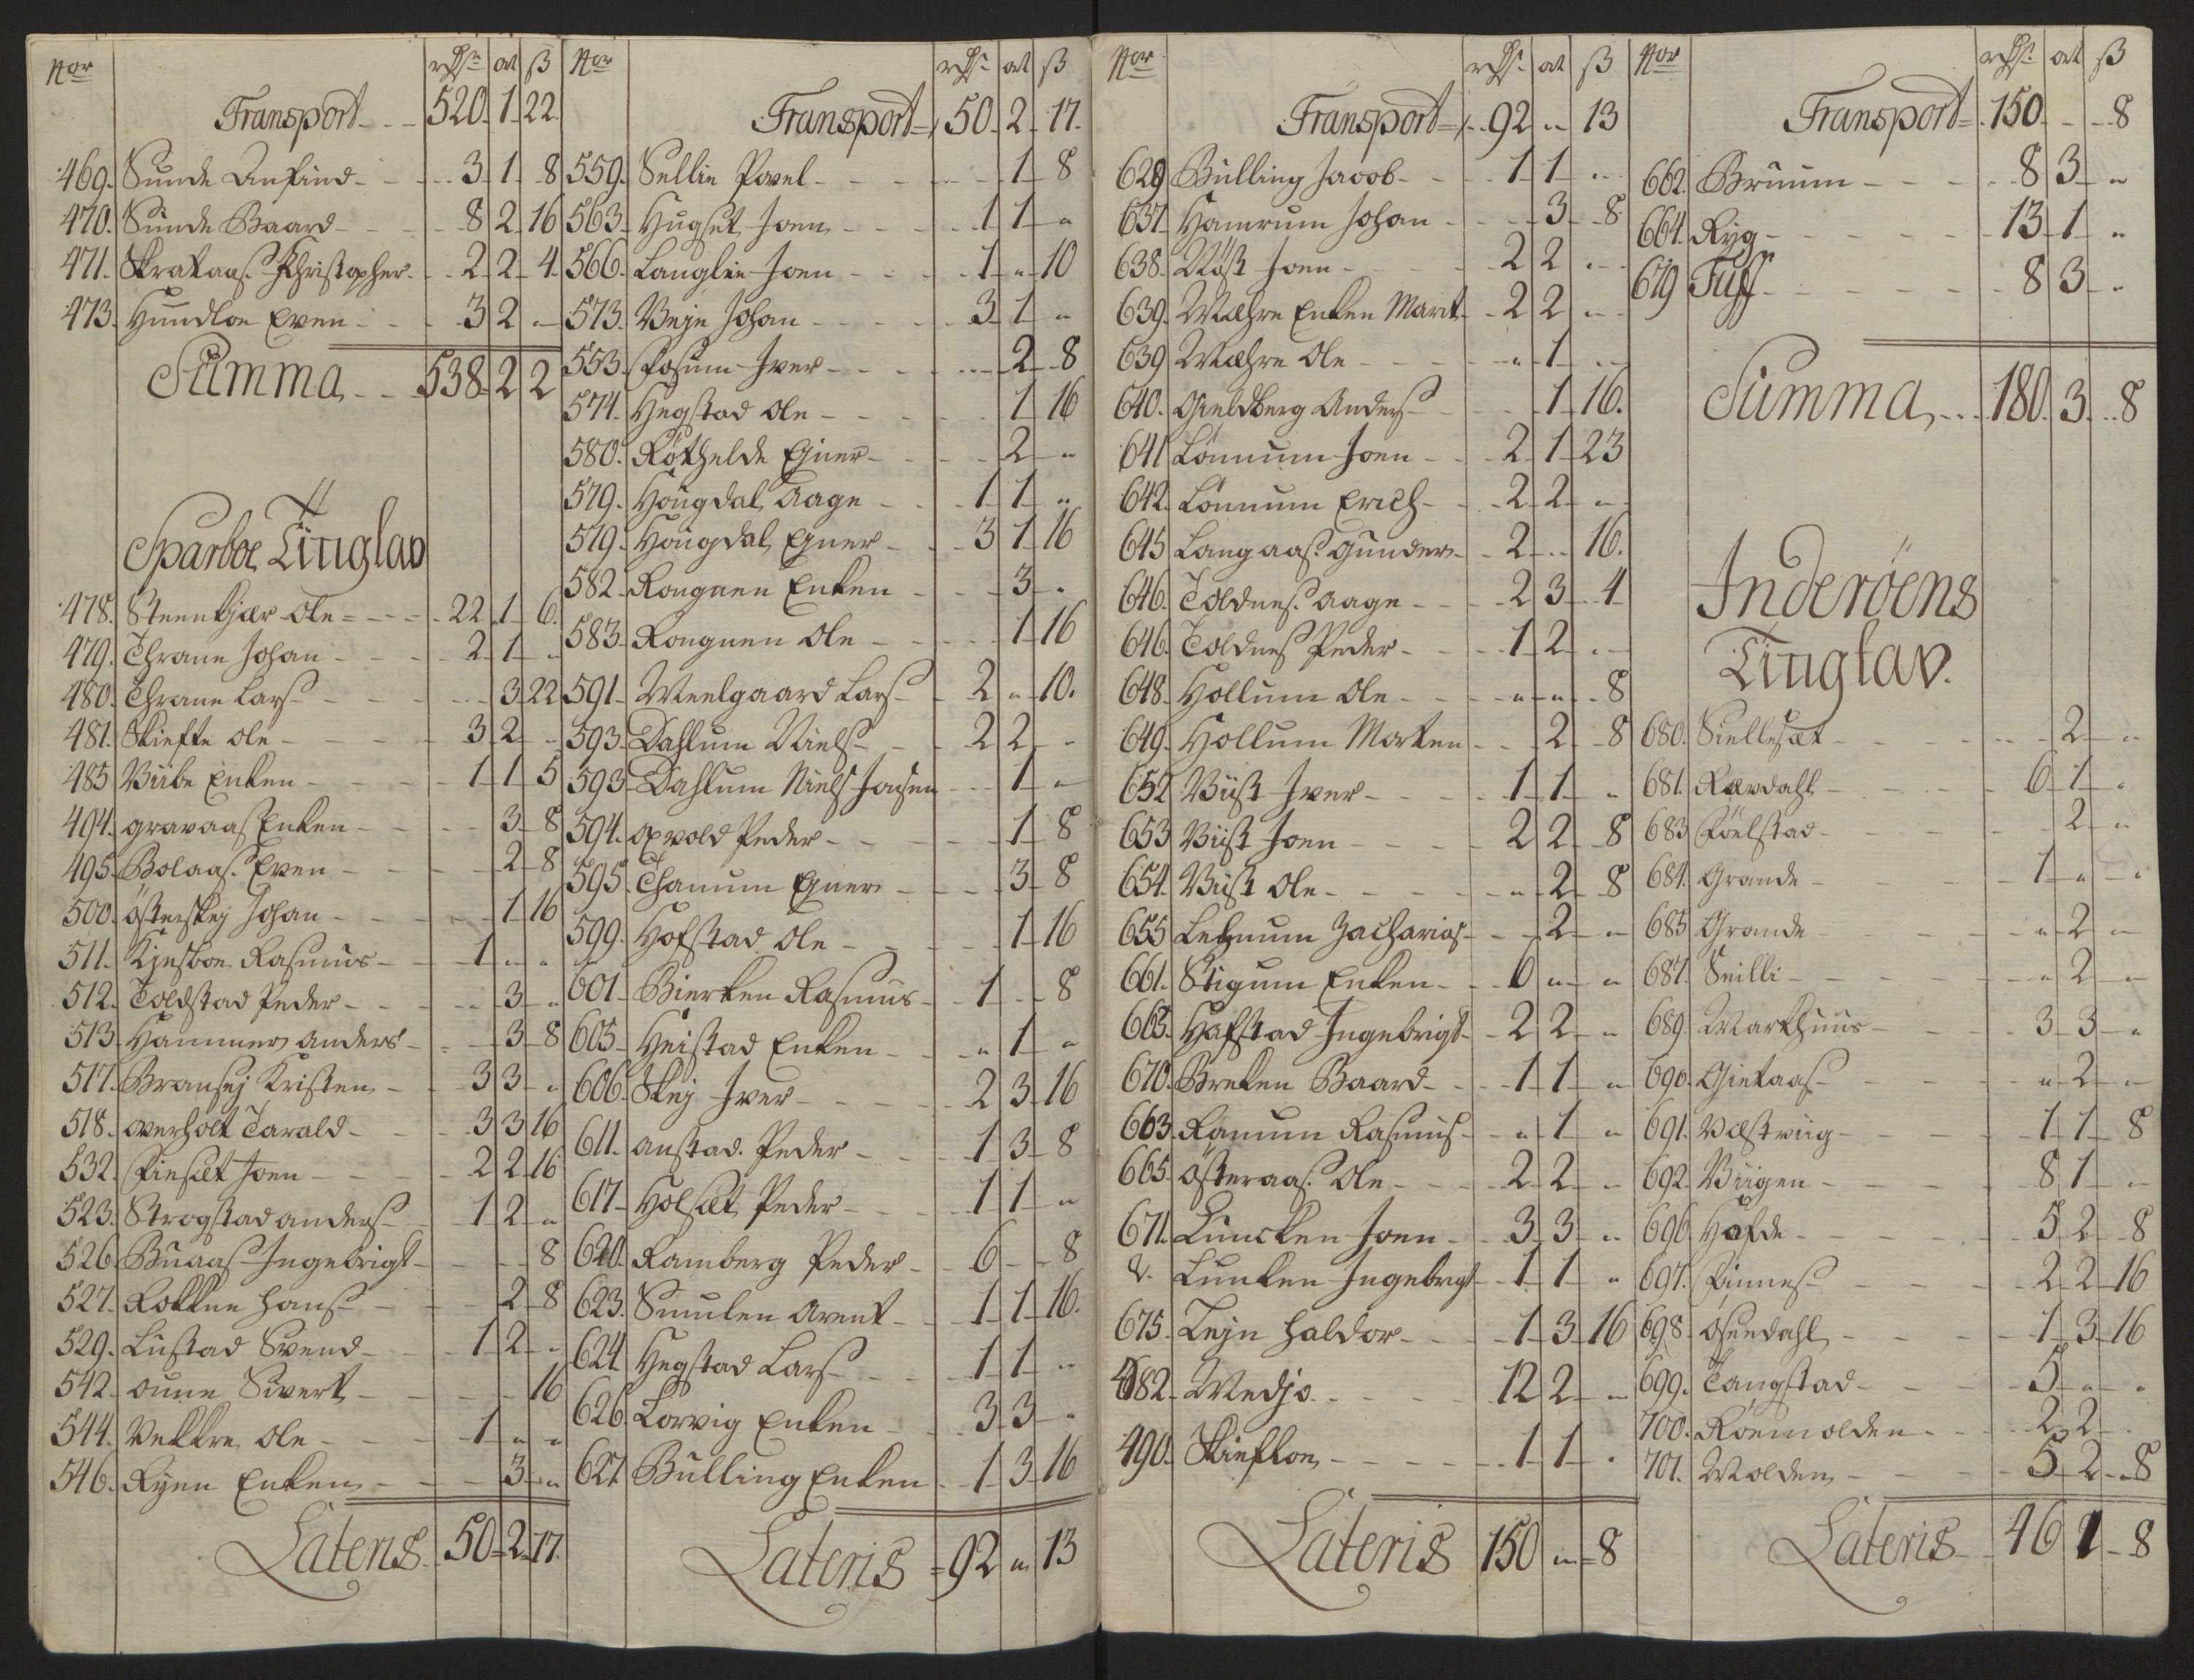 Nor rdr ort ß
Transport 520. 1. 22.
469. Sunde Anfind 3 1 8
470. Sunde Baard 8 2 16
471. Skrataas Christopher 2 2 4
473. Hundloe Even 3 2 "
Summa 538 2 2
Sparboe Tinglav
478. Steenkjær Ole 22 1 6.
479. Thrane Johan 2 1 "
480. Thrane Lars 3 22
481. Skiefte Ole 3 2 "
485 Viibe Enken 1 1 5
494. Gravaas Enken 3 8
495. Bolaas Even 2 8
500. Østerskej Johan 1 16
511. Kjesboe Rasmus 1 " "
512. Toldstad Peder 3 "
513 Hammer Anders 3 8
517. Bransej Kristen 3 3 "
518. Overholt Tarald 3 3 16
532. Finsæt Joen 2 2 16
523. Strogstad Anders 1 2 "
526. Buaas Ingebrigt 8
527. Rokkne Hans 2 8
529. Lustad Svend 1 2 "
542. Oune Sivert 16
544. Vekkre Ole 1 " "
546. Ryen Enken 3 "
Lateris 50 2 17.
Nor rdr ort ß
Transport 50 2 17.
559. Sellie Povel 1 8
563. Hugset Joen 1 1 "
566. Langlie Joen 1 " 10
573. Veje Johan 3 1 "
553. Fosum Iver 2 8
574. Hegstad Ole 1 16
580. Røthelde Einer 2 "
579. Hougdal Aage 1 1 "
579. Hougdal Einer 3 1 16
582. Rongnen Enken 3 "
583. Rongnen Ole 1 16
591. Weelgaard Lars 2 " 10.
593. Dahlum Niels 2 2 "
593. Dahlum Niels Jonsen 1 "
594. Opvold Peder 1 8
595. Thanum Einer 3 8
599. Hofstad Ole 1 16
601. Bierken Rasmus 1 8
605. Heistad Enken " 1 "
606. Skej Iver 2 3 16
611. Austad Peder 1 3 8
617. Holsæt Peder 1 1 "
620. Ramberg Peder 6 8
623. Smulen Arent 1 1 16.
624 Hegstad Lars 1 1 "
626. Lorvig Enken 3 3 "
627. Bulling Enken 1 3 16
Lateris 92 " 13
Nor rdr ort ß
Transport 92 " 13
628 Bulling Jacob 1 1 "
637 Hamrum Johan 3 8
638. Røst Joen 2 2 "
639. Mæhre Enken Marit 2 2 "
639 Mæhre Ole " 1 "
640. Gieldberg Anders 1 16.
641 Lønnum Joen 2 1 23
642. Lønnum Erich 2 2 "
645 Langaas Gunder 2 16.
646. Toldnes Aage 2 3 4
646. Toldnes Peder 1 2 "
648. Hollum Ole " " 8
649. Hollum Morten 2 8
652 Viist Iver 1 1 "
653 Viist Joen 2 2 8
654. Viist Ole " 2 8
655 Lehnum Zacharias 2 "
661. Stigum Enken 6 " "
665. Hafstad Ingebrigt 2 2 "
670. Breken Baard 1 1 "
663. Ranum Rasmus " 1 "
665. Østeraas Ole 2 2 "
671. Luncken Joen 3 3 "
d. Lunken Ingebrigt 1 1 "
675. Teje Haldor 1 3 16
682. Medjo 12 2 "
490. Skiefloe 1 1 "
Lateris 150 " 8
Nor rdr ort ß
Transport 150. 8
662. Bruum 8 3 "
664. Ryg 13 1 "
679 Fuss 8 3 "
Summa 180. 3 8
Inderöens Tinglav.
680. Siellesæt 2 "
681. Rævdahl 6 1 "
683 Føelstad 2 "
684. Grande 1 " "
685 Grande " 2 "
687. Snilli " 2 "
689. Warthuus 3 3 "
690. Gietaas " 2 "
691. Væstviig 1 1 8
692. Viigen 8 1 "
696. Hofde 5 2 8
697. Finnes 2 2 16
698. Øsendahl 1 3 16
699. Tangstad 5 " "
700. Röemolden 2 2
701. Molden 5 2 8
Lateris 46 1 8